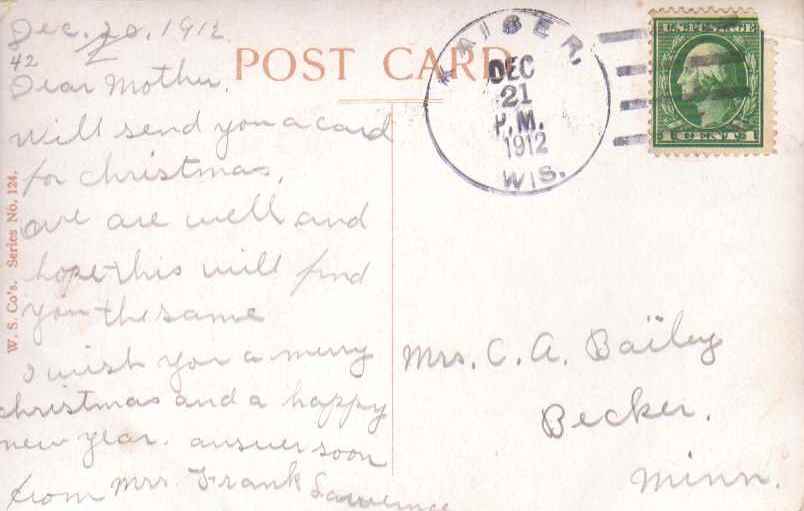 Dec. 20, 1912.
42
Dear Mother.
Will send you a card
for christmas,
we are well and
hope this will find
you the same
I wish you a merry
christmas and a happy
new year. answer soon
from Mrs Frank Lawrence
POST CARD
KAISER,
DEC
21
P.M.
1912
WIS.
Mrs. C. A. Bailey
Becker.
Minn.
W. S. Co's. Series No. 124.